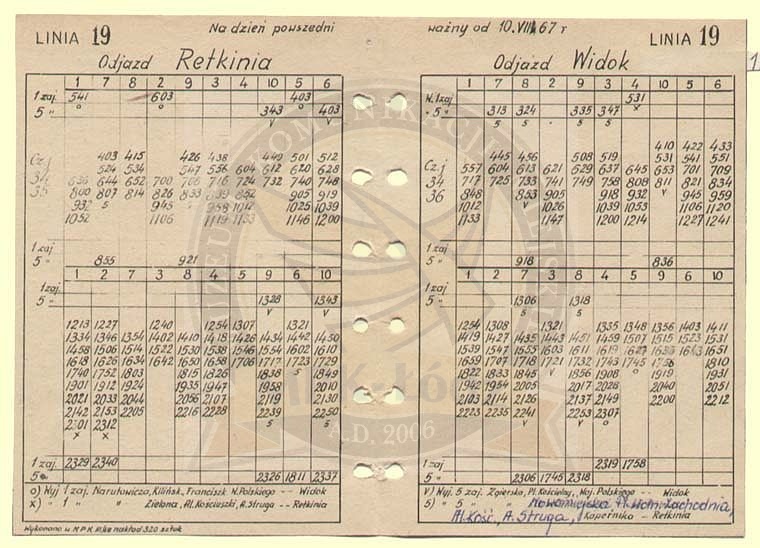 LINIA 19
Na dzień powszedni
ważny od 10.VIII 67 r
LINIA 19
Odjazd Retkinia
Odjazd Widok
1 7 8 2 9 3 4 10 5 6
1 zaj. 541 603 403
5 " 343 403
403 415 426 438 449 501 512
Cz.j 524 534 547 556 604 612 620 628
34 636 644 652 700 708 716 724 732 740 748
35 800 807 814 826 833 839 852 905 919
932 945 958 1012 1025 1039
1052 1106 1119 1133 1146 1200
1 zaj
5 " 855 921
1 2 7 8 9 3 4 10 5 6
1 zaj.
5 " 1328 1343
1213 1227 1240 1254 1307 1321
1334 1346 1354 1402 1410 1418 1426 1434 1442 1450
1458 1506 1514 1522 1530 1538 1546 1554 1602 1610
1618 1626 1634 1642 1650 1658 1708 1717 1723 1729
1740 1752 1803 1815 1826 1838 1849
1901 1912 1924 1935 1947 1958 2010
2021 2033 2044 2056 2107 2119 2130
2142 2153 2205 2216 2228 2239 2250
2301 2312
1 zaj. 2329 2340
5 " 2326 1811 2337
o) Wyj 1 zaj. Narutowicza, Kilińsk., Franciszk. N.Polskiego -- Widok
x) " 1 " " Zielona, Al. Kościuszki, A.Struga -- Retkinia
Wykonano w MPK
nakład 320 sztuk
1 7 8 2 9 3 4 5 6 10
W. 1 zaj 531
5 " 313 324 335 347
410 422 433
445 456 508 519 531 541 551
Cz.j 557 604 613 621 629 637 645 653 701 709
34 717 725 733 741 749 758 808 811 821 834
36 848 853 905 918 932 945 959
1012 1026 1039 1053 1106 1120
1133 1147 1200 1214 1227 1241
1 zaj
5 " 918 836
1 2 7 8 9 3 4 5 6 10
1 zaj.
5 " 1306 1318
1254 1308 1321 1335 1348 1356 1403 1411
1419 1427 1435 1443 1451 1459 1507 1515 1523 1531
1539 1547 1555 1603 1611 1619 1627 1651
1659 1707 1721 1732 1743 1745 1810
1822 1833 1845 1856 1908 1919 1931
1942 1954 2005 2017 2028 2040 2051
2103 2114 2126 2137 2149 2200 2212
2223 2235 2241 2253 2307
1 zaj. 2319 1758
5 " 2306 1745 2318
v) Wyj. 5 zaj. Zgierska, Pl. Kościelny, Woj. Polskiego -- Widok
5) " 5 " " Nowomiejska, Pl. Woln. Zachodnia,
Al. Kość., A. Struga, Kopernika - Retkinia
A.D. 2006